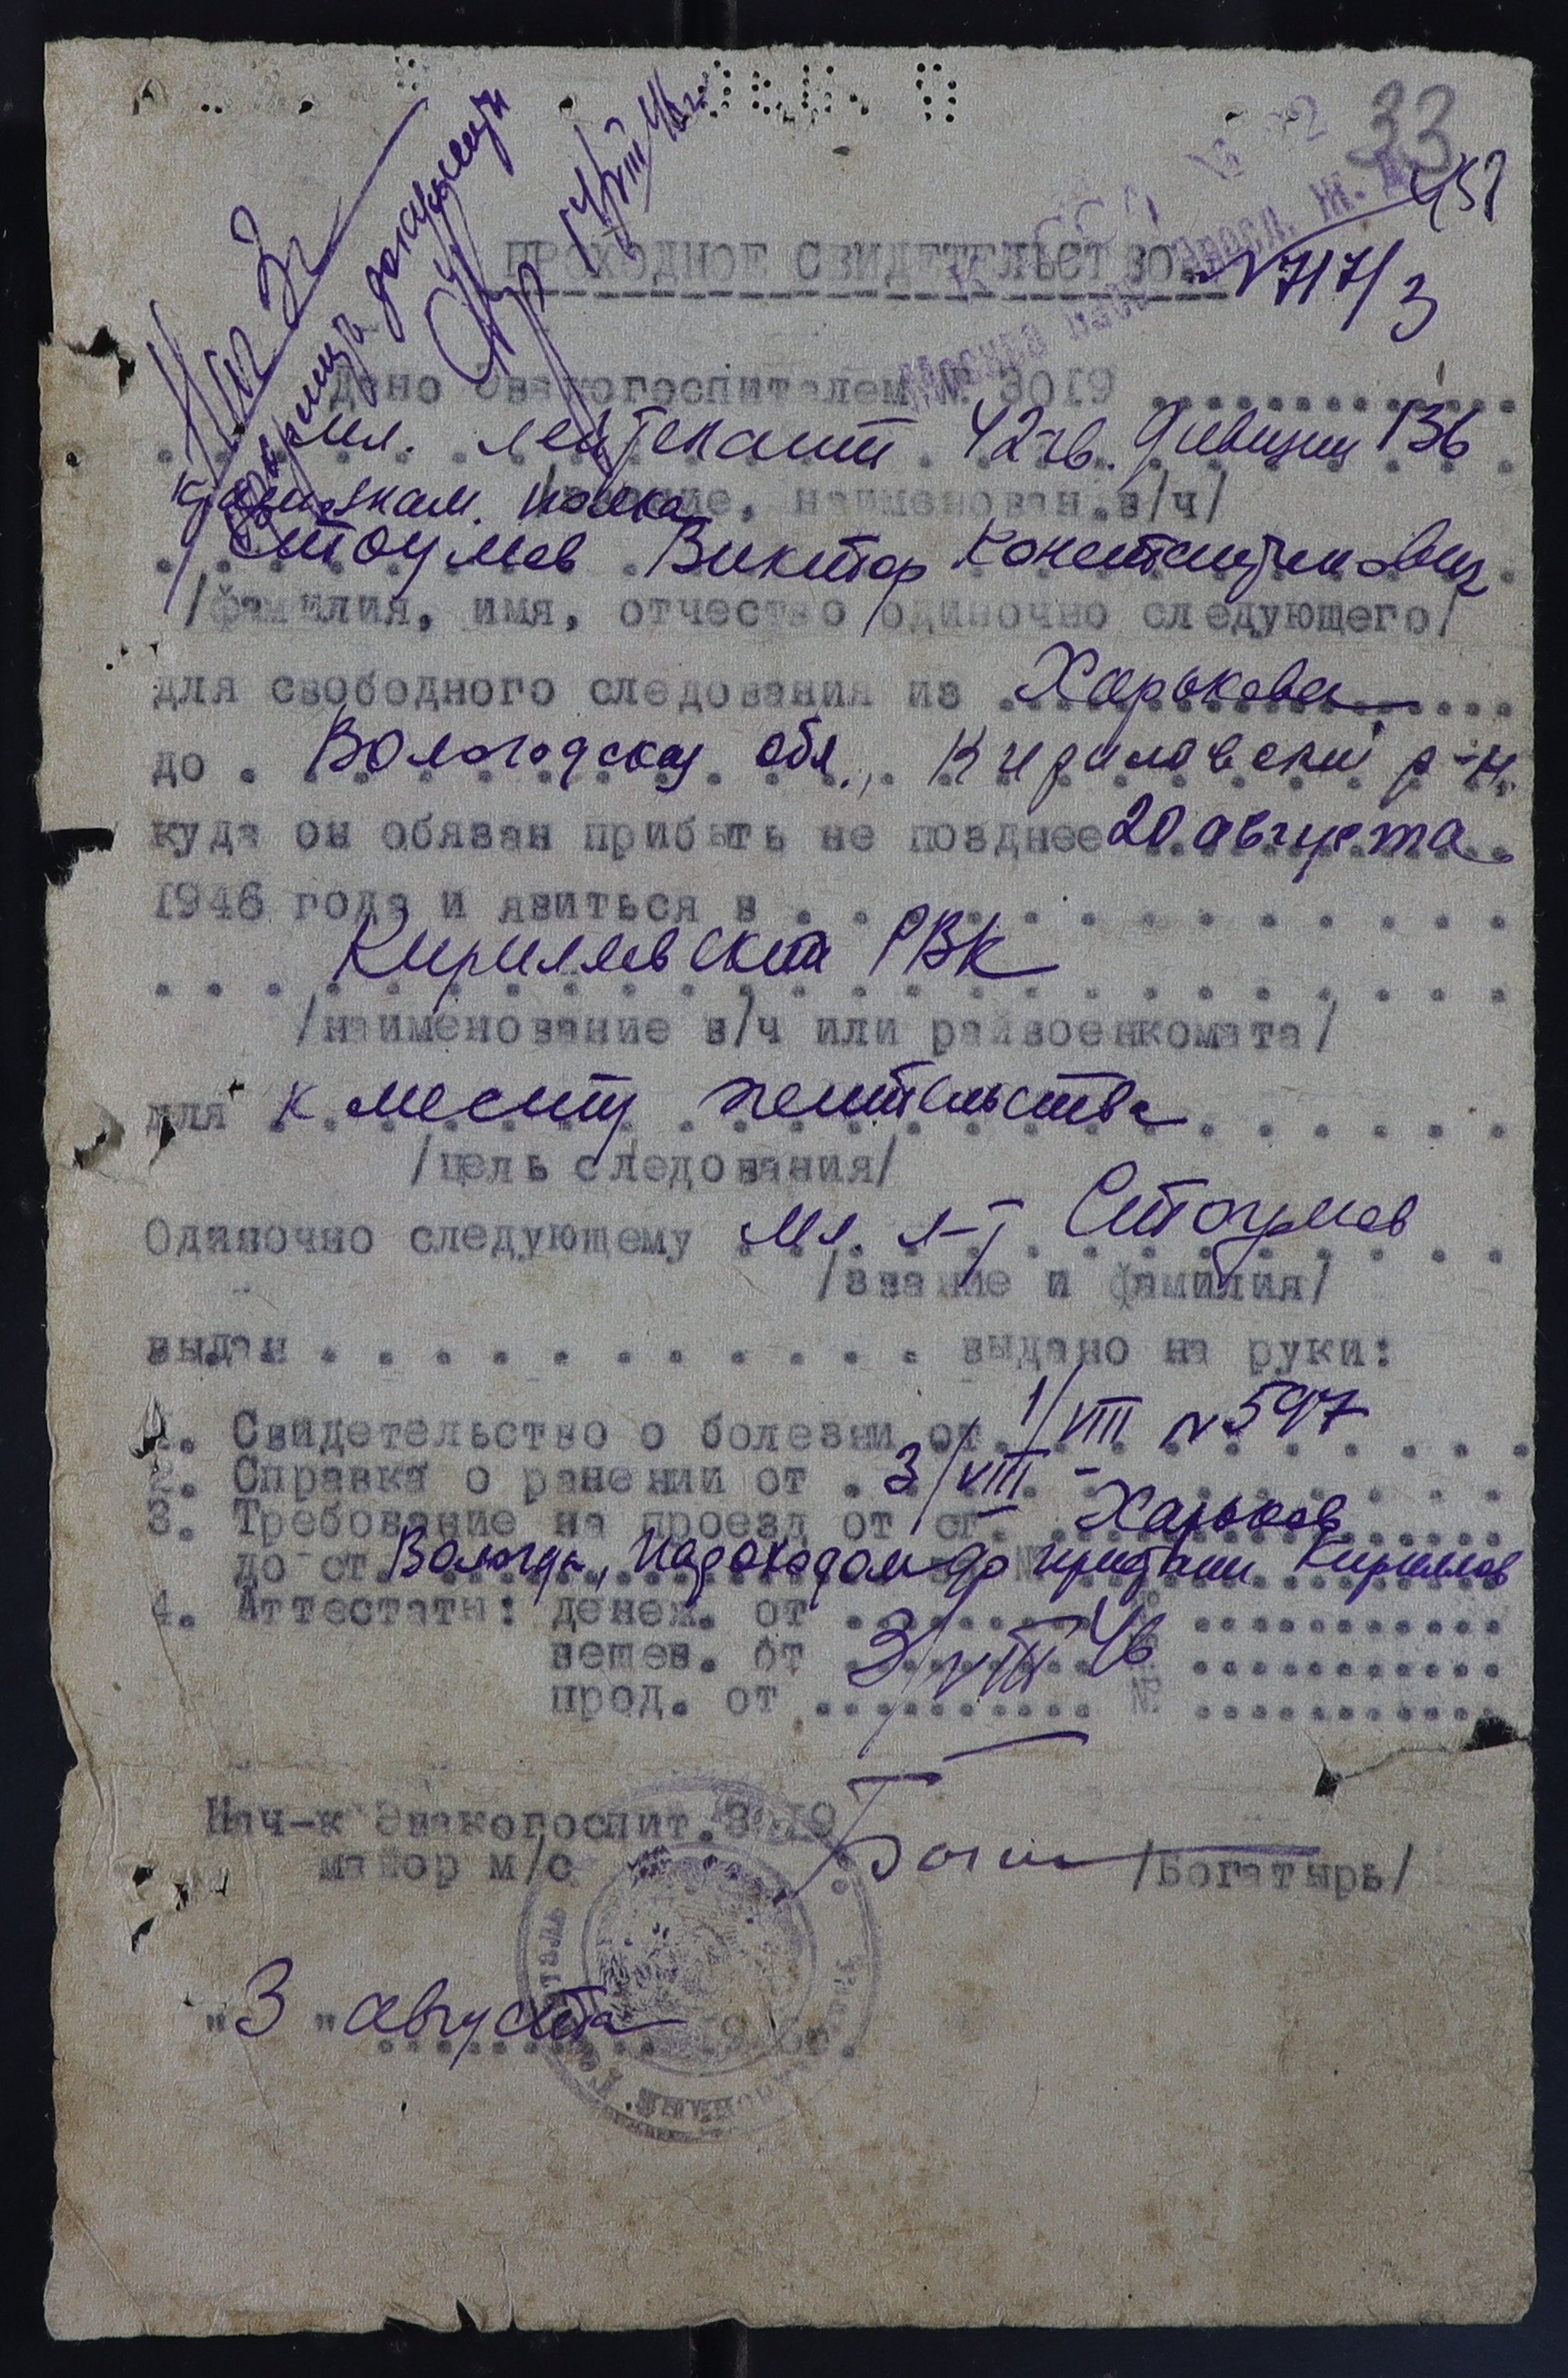 33
452
ПРОХОДНОЕ СВИДЕТЕЛЬСТВО № 717/3
Дано Эвакогоспиталем № 3019
мл. лейтенант 42 гв. дивизии 136
краснознам. полка
/звание, наименован.в/ч/
Стоумов Виктор Константинович
/фамилия, имя, отчество одиночно следующего/
для свободного следования из Харькова
до Вологодская обл., Кириловский р-н.
куда он обязан прибыть не позднее 20 августа
1946 года и явиться в
Кирилловский РВК
/наименование в/ч или райвоенкомата/
для к месту жительства
/цель следования/
Одиночно следующему мл. л-т Стоумов
/звание и фамилия/
выдан выдано на руки:
1. Свидетельство о болезни от 1/VIII № 597
2. Справка о ранении от 3/VIII -
3. Требование на проезд от ст. Харьков
до ст. Вологда, пароходом до пристани Кириллов
4. Аттестаты: денеж. от
вещев. от 3/VIII 46
прод. от №
Нач-к Эвакогоспит. 3019
майор м/с /Богатырь/
"3" августа 1946г.